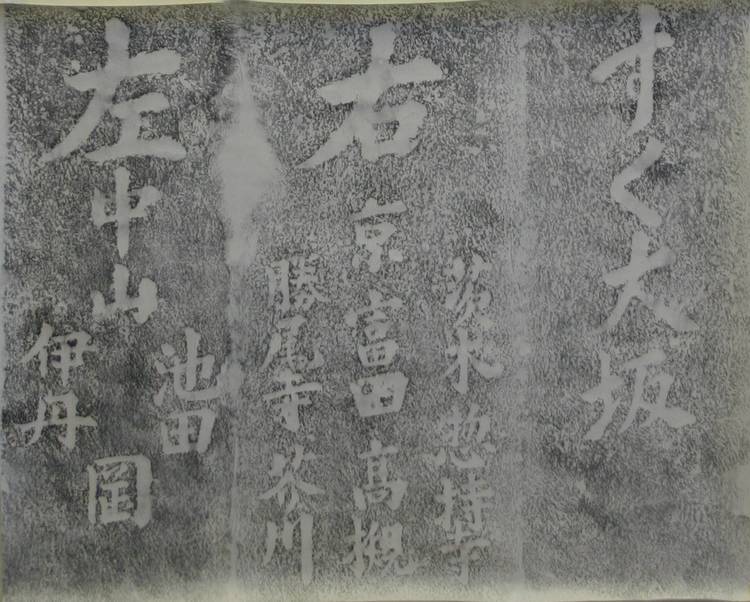 すく大坂
右
茨木 惣持寺
京 富田 高槻
勝尾寺 芥川
左
中山
池田
伊丹
岡